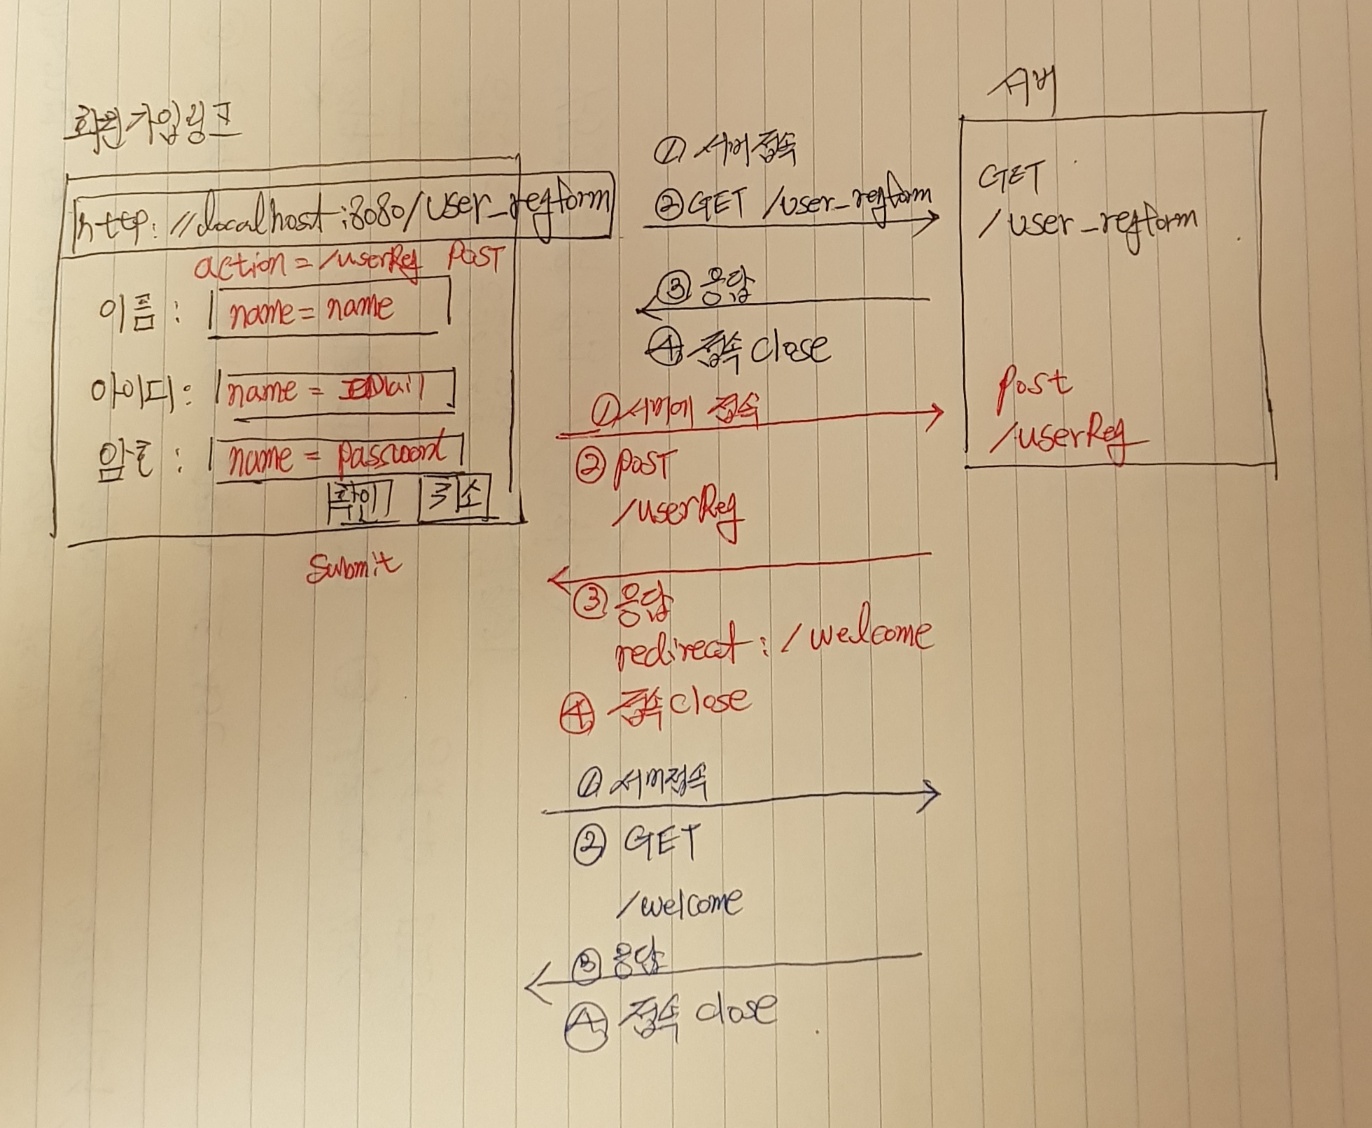 회원가입링크
http://localhost:8080/user_regform
action=/userReg POST
이름: name=name
아이디: name=email
암호: name=password
확인 취소
submit
① 서버접속
② GET /user_regform
③ 응답
④ 접속 close
① 서버에 접속
② POST
/userReg
③ 응답
redirect:/welcome
④ 접속 close
① 서버접속
② GET
/welcome
③ 응답
④ 접속 close
서버
GET
/user_regform
Post
/userReg